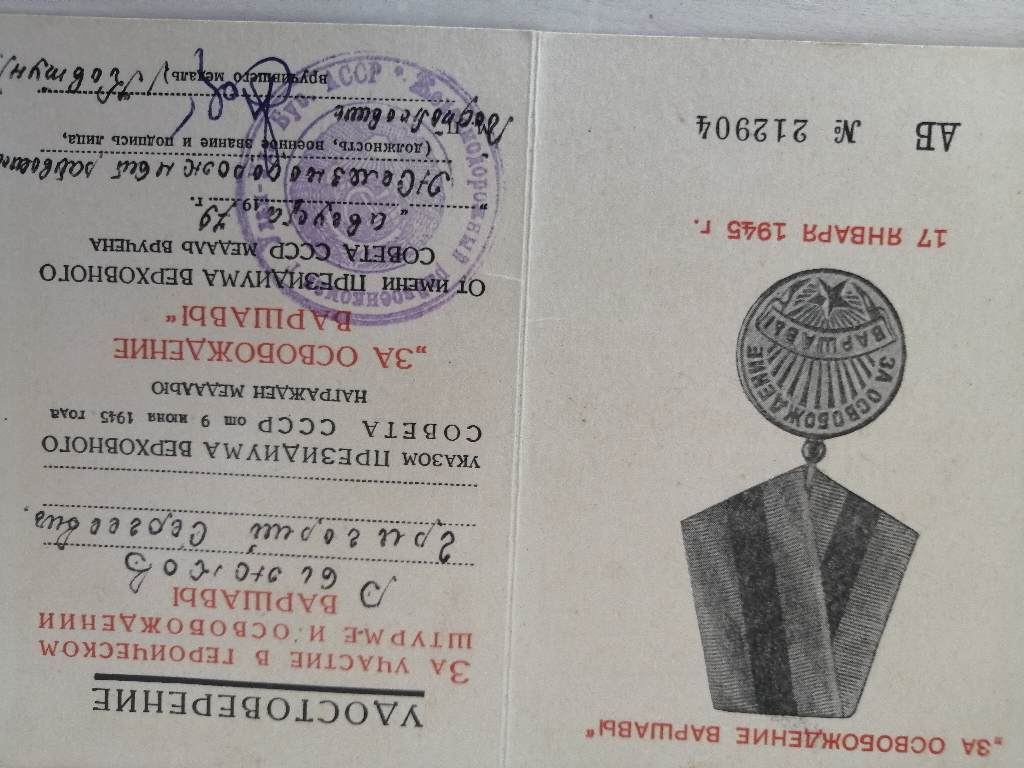 „ЗА ОСВОБОЖДЕНИЕ ВАРШАВЫ“
ЗА ОСВОБОЖДЕНИЕ
ВАРШАВЫ
17 ЯНВАРЯ 1945 г.
АВ № 212904
УДОСТОВЕРЕНИЕ
ЗА УЧАСТИЕ В ГЕРОИЧЕСКОМ
ШТУРМЕ И ОСВОБОЖДЕНИИ
ВАРШАВЫ
Григорий Сергеевич
УКАЗОМ ПРЕЗИДИУМА ВЕРХОВНОГО
СОВЕТА СССР от 9 июня 1945 года
НАГРАЖДЕН МЕДАЛЬЮ
„ЗА ОСВОБОЖДЕНИЕ
ВАРШАВЫ“
От ИМЕНИ ПРЕЗИДИУМА ВЕРХОВНОГО
СОВЕТА СССР МЕДАЛЬ ВРУЧЕНА
„ августа 1979 г.
Железнодорожный райвоенком
(должность, военное звание и подпись лица,
М. П.
вручившего медаль)
Железнодорожный райвоенкомат